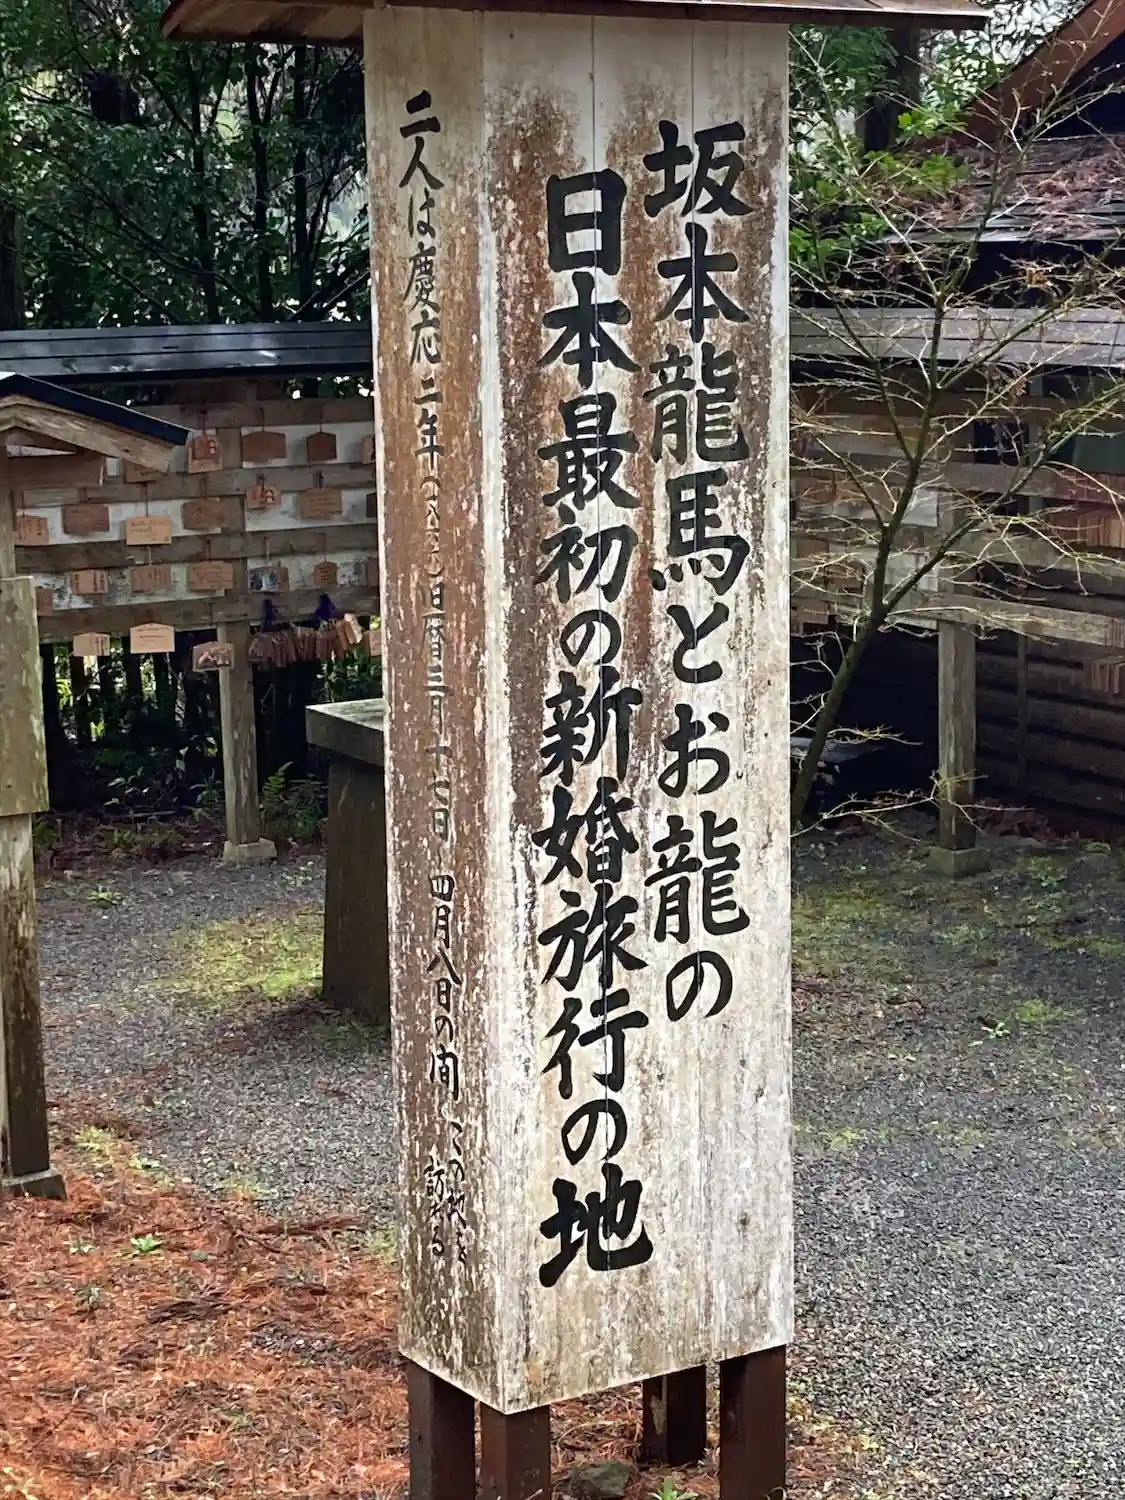 坂本龍馬とお龍の
日本最初の新婚旅行の地
二人は慶応二年(一八六六)旧暦三月十七日 四月八日の間 この地を
訪れる